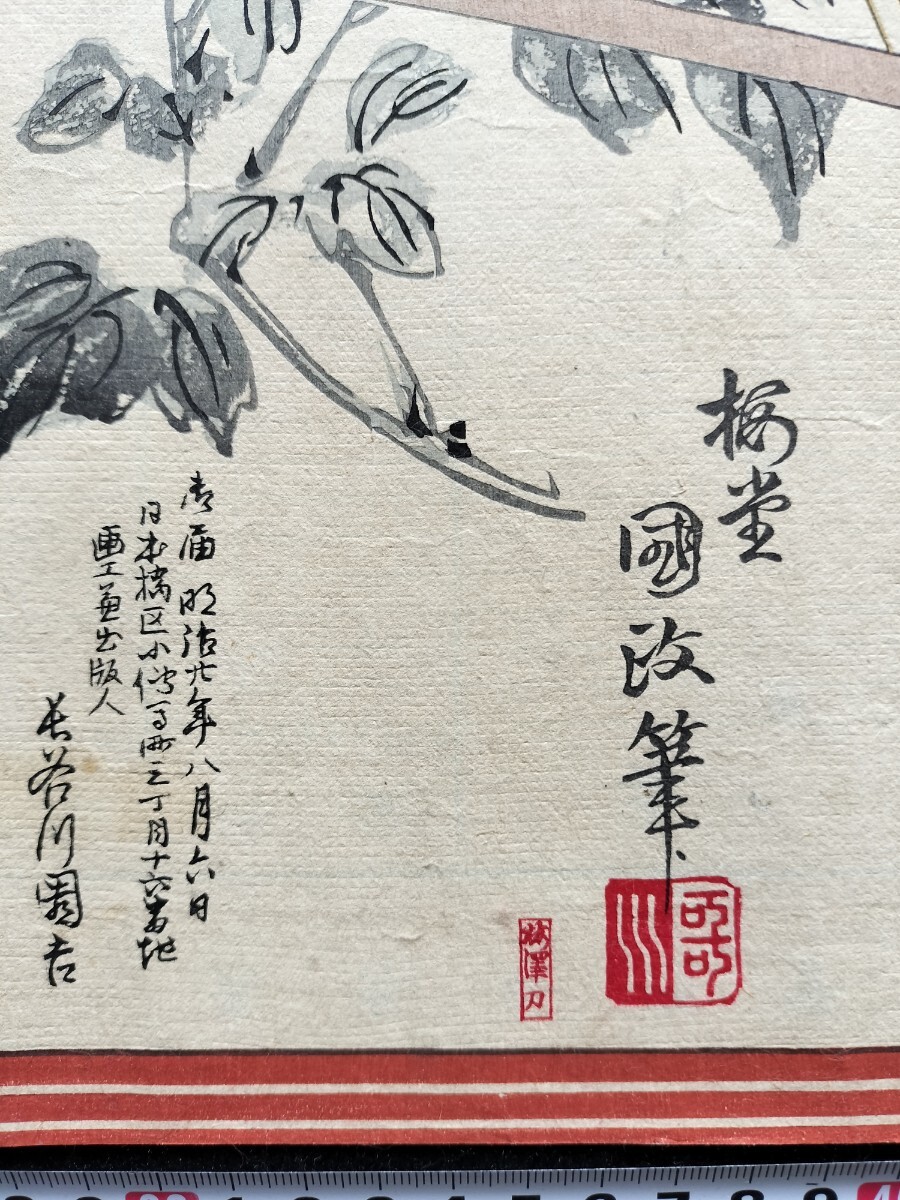 梅堂
國政筆
梅澤刀
御届明治廿年八月六日
日本橋区小傳馬町三丁目十六番地
画工兼出版人
長谷川園吉